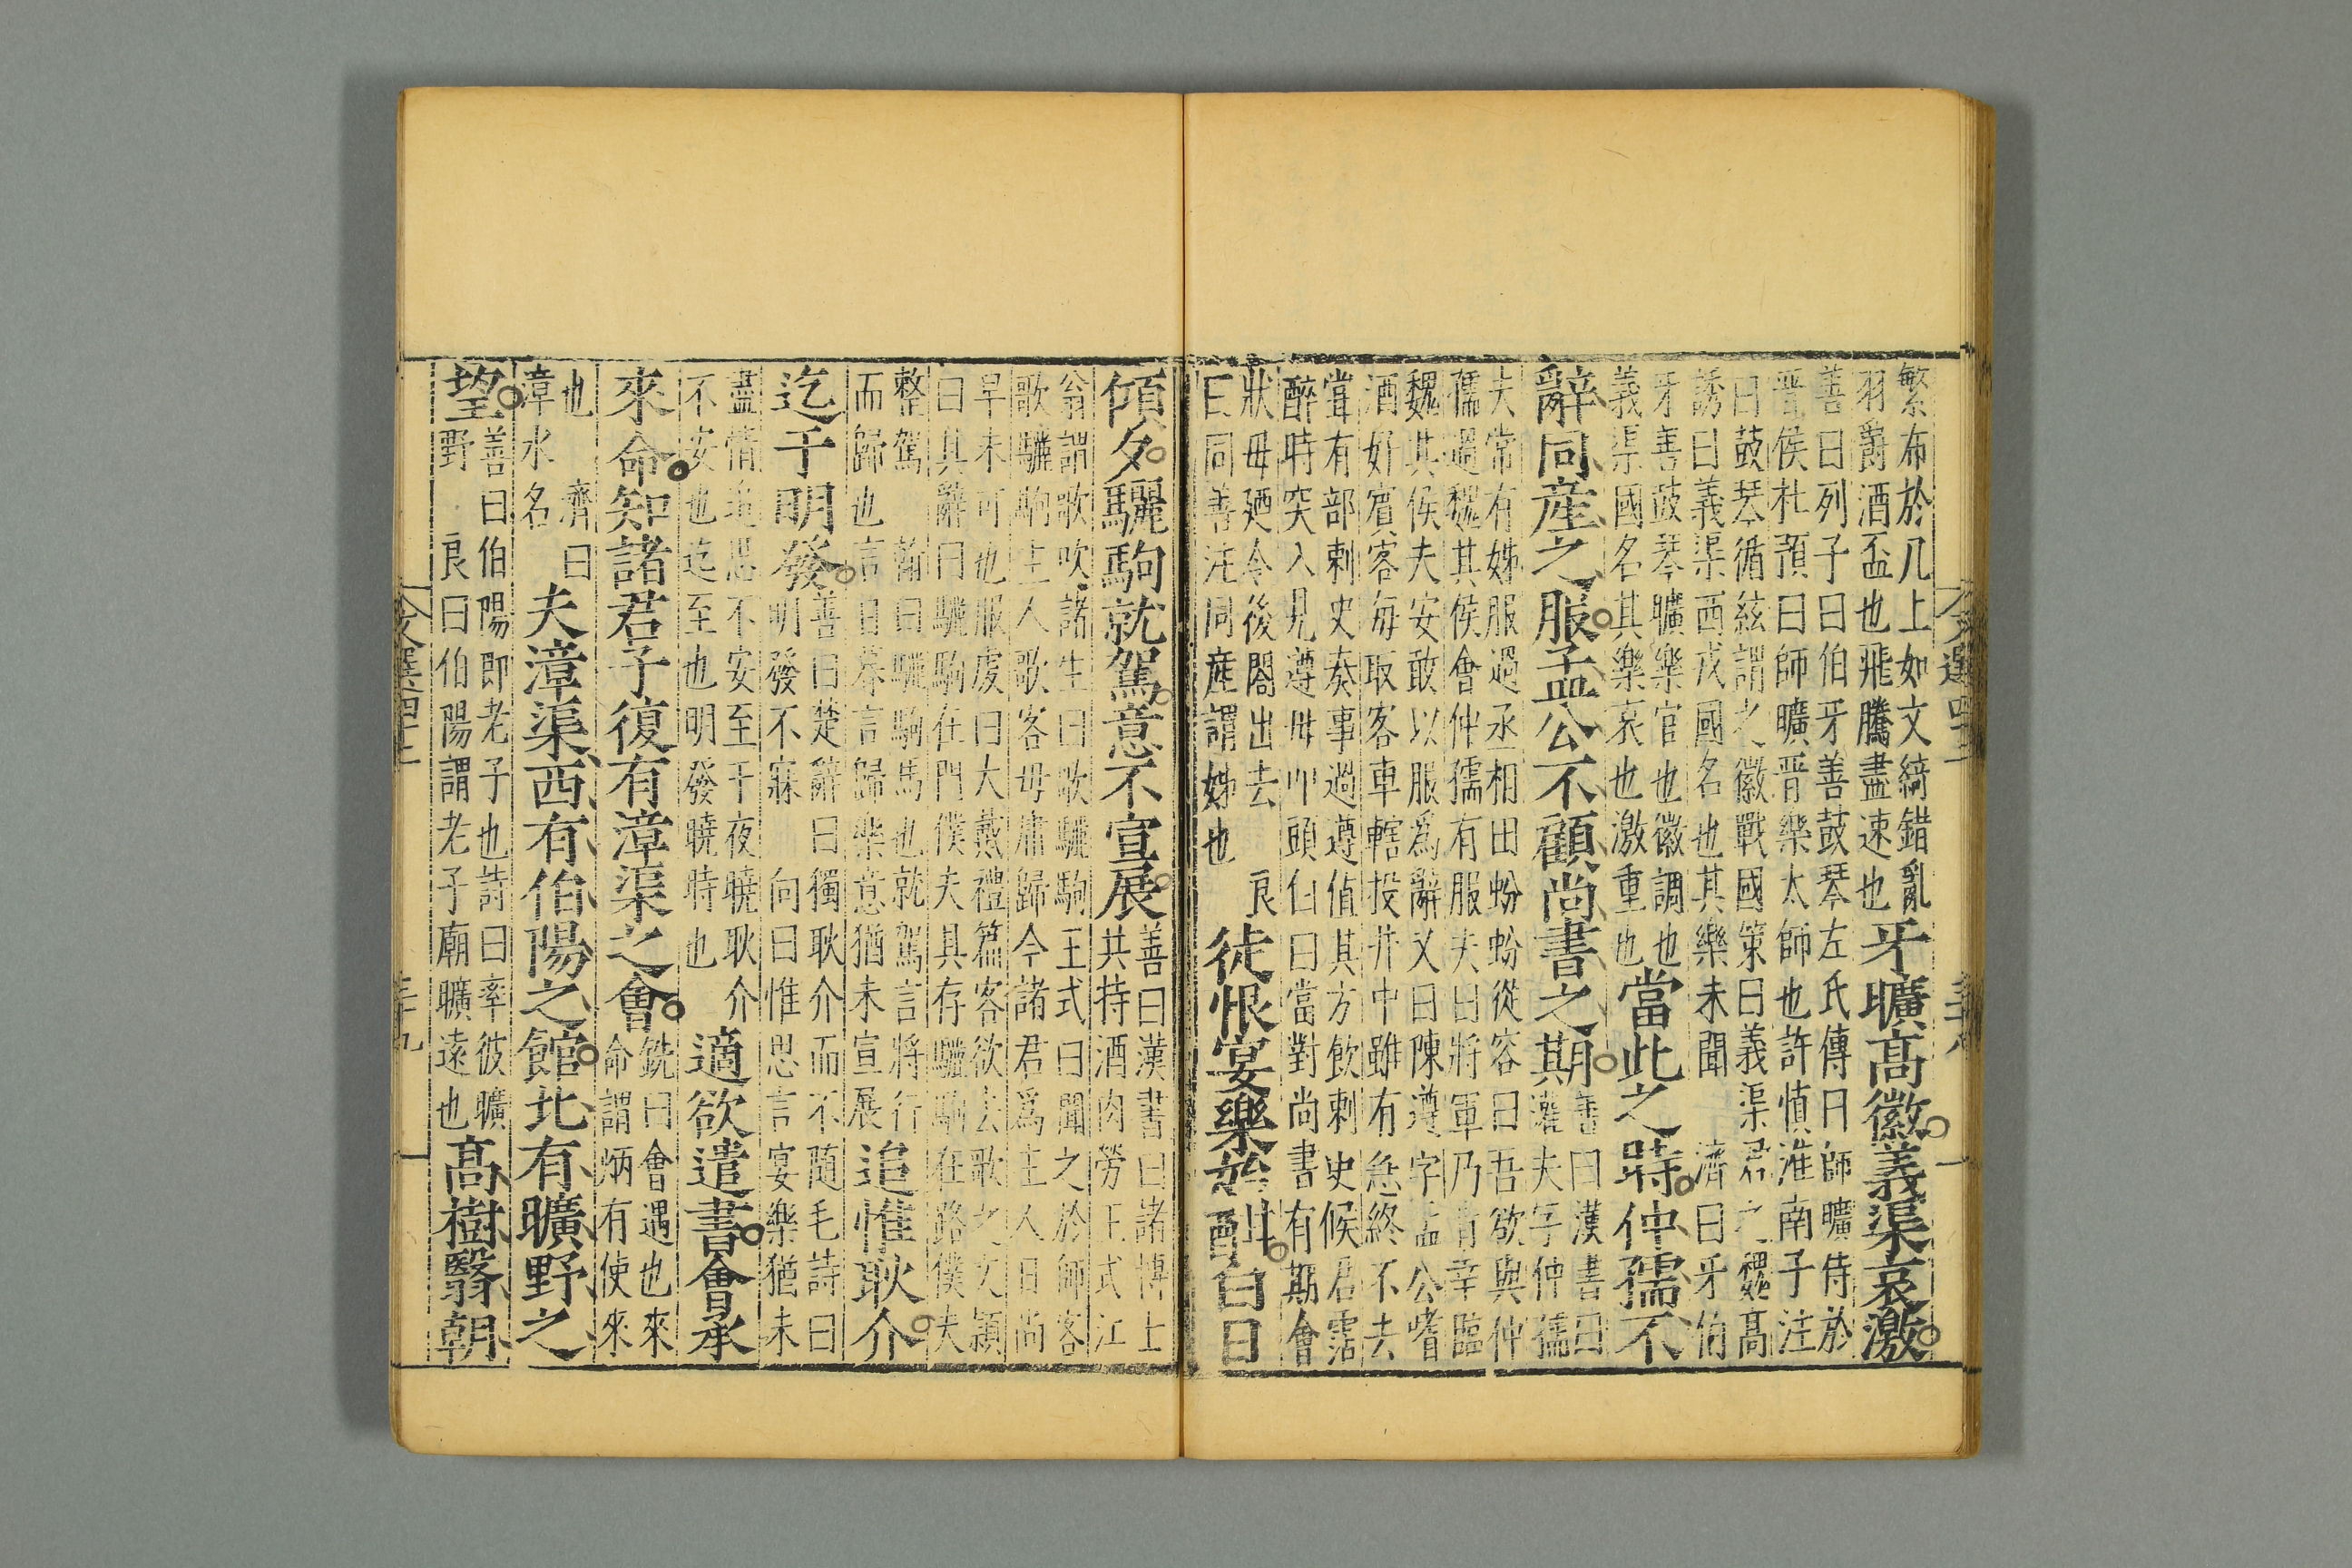 繁布於几上如文綺錯亂
羽爵酒盃也飛騰盡速也牙曠高徽義渠哀激
善曰列子曰伯牙善鼓琴左氏傳曰師曠侍於
晋侯杜預曰師曠晋樂太師也許慎淮南子注
曰鼓琴循絃謂之徽戰國策曰義渠君之魏高
誘曰義渠西戎國名也其樂未聞 濟曰牙伯
牙善鼓琴曠樂官也徽調也
義渠國名其樂哀也激重也當此之時仲孺不
辭同産之服孟公不顧尚書之期善曰漢書曰
灌夫字仲孺
夫常有姊服過丞相田蚡蚡從容曰吾欲與仲
孺過魏其侯會仲孺有服夫曰將軍乃肯幸臨
魏其侯夫安敢以服爲辭又曰陳遵字孟公嗜
酒好賔客每取客車轄投井中雖有急終不去
甞有部刺史奏事過遵值其方飲刺史候君霑
醉時突入見遵母叩頭自曰當對尚書有期會
狀母廼令後閤出去 良
曰同善注同産謂姊也徒恨宴樂始酣白日
傾夕驪駒就駕意不宣展善曰漢書曰諸博士
共持酒肉勞王式江
翁謂歌吹諸生曰歌驪駒王式曰聞之於師客
歌驪駒主人歌客毋庸歸今諸君爲主人日尚
早未可也服虔曰大戴禮篇客欲去歌之文穎
曰其辭曰驪駒在門僕夫具存驪駒在路僕夫
整駕 翰曰驪駒馬也就駕言將行
而歸也言日暮言歸樂意猶未宣展追惟耿介
迄于明發善曰楚辭曰獨耿介而不隨毛詩曰
明發不寐 向曰惟思言宴樂猶未
盡情追思不安至于夜曉耿介
不安也迄至也明發曉時也適欲遣書會承
來命知諸君子復有漳渠之會銑曰會遇也來
命謂炳有使來
也 濟曰
漳水名夫漳渠西有伯陽之館北有曠野之
望善曰伯陽即老子也詩曰率彼曠
野 良曰伯陽謂老子廟曠遠也高樹翳朝
文選四十二 三十八
文選四十二 三十九